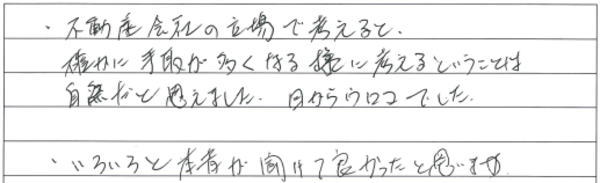 ・不動産会社の立場で考えると、
確かに手取が多くなる様に考えるということは
自然だと思えました。目からウロコでした。
・いろいろと本音が聞けて良かったと思います。